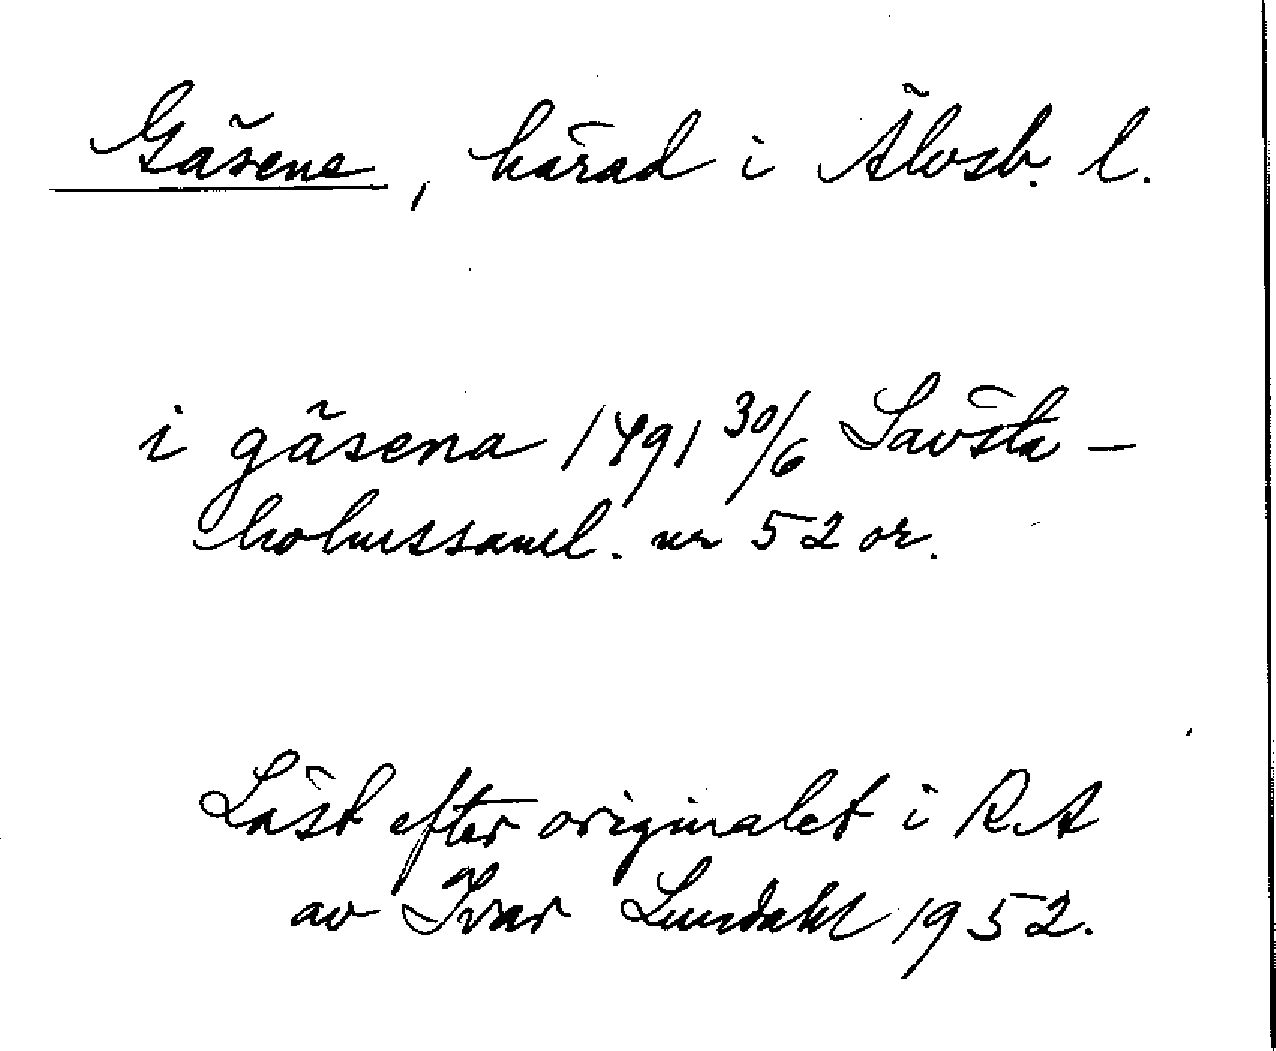 Gäsene, härad i Älvsb. l.
i gäsena 1491 30/6 Sävsta-
holmssaml. nr 52 or.
Läst efter originalet i RA
av Ivar Lundahl 1952.